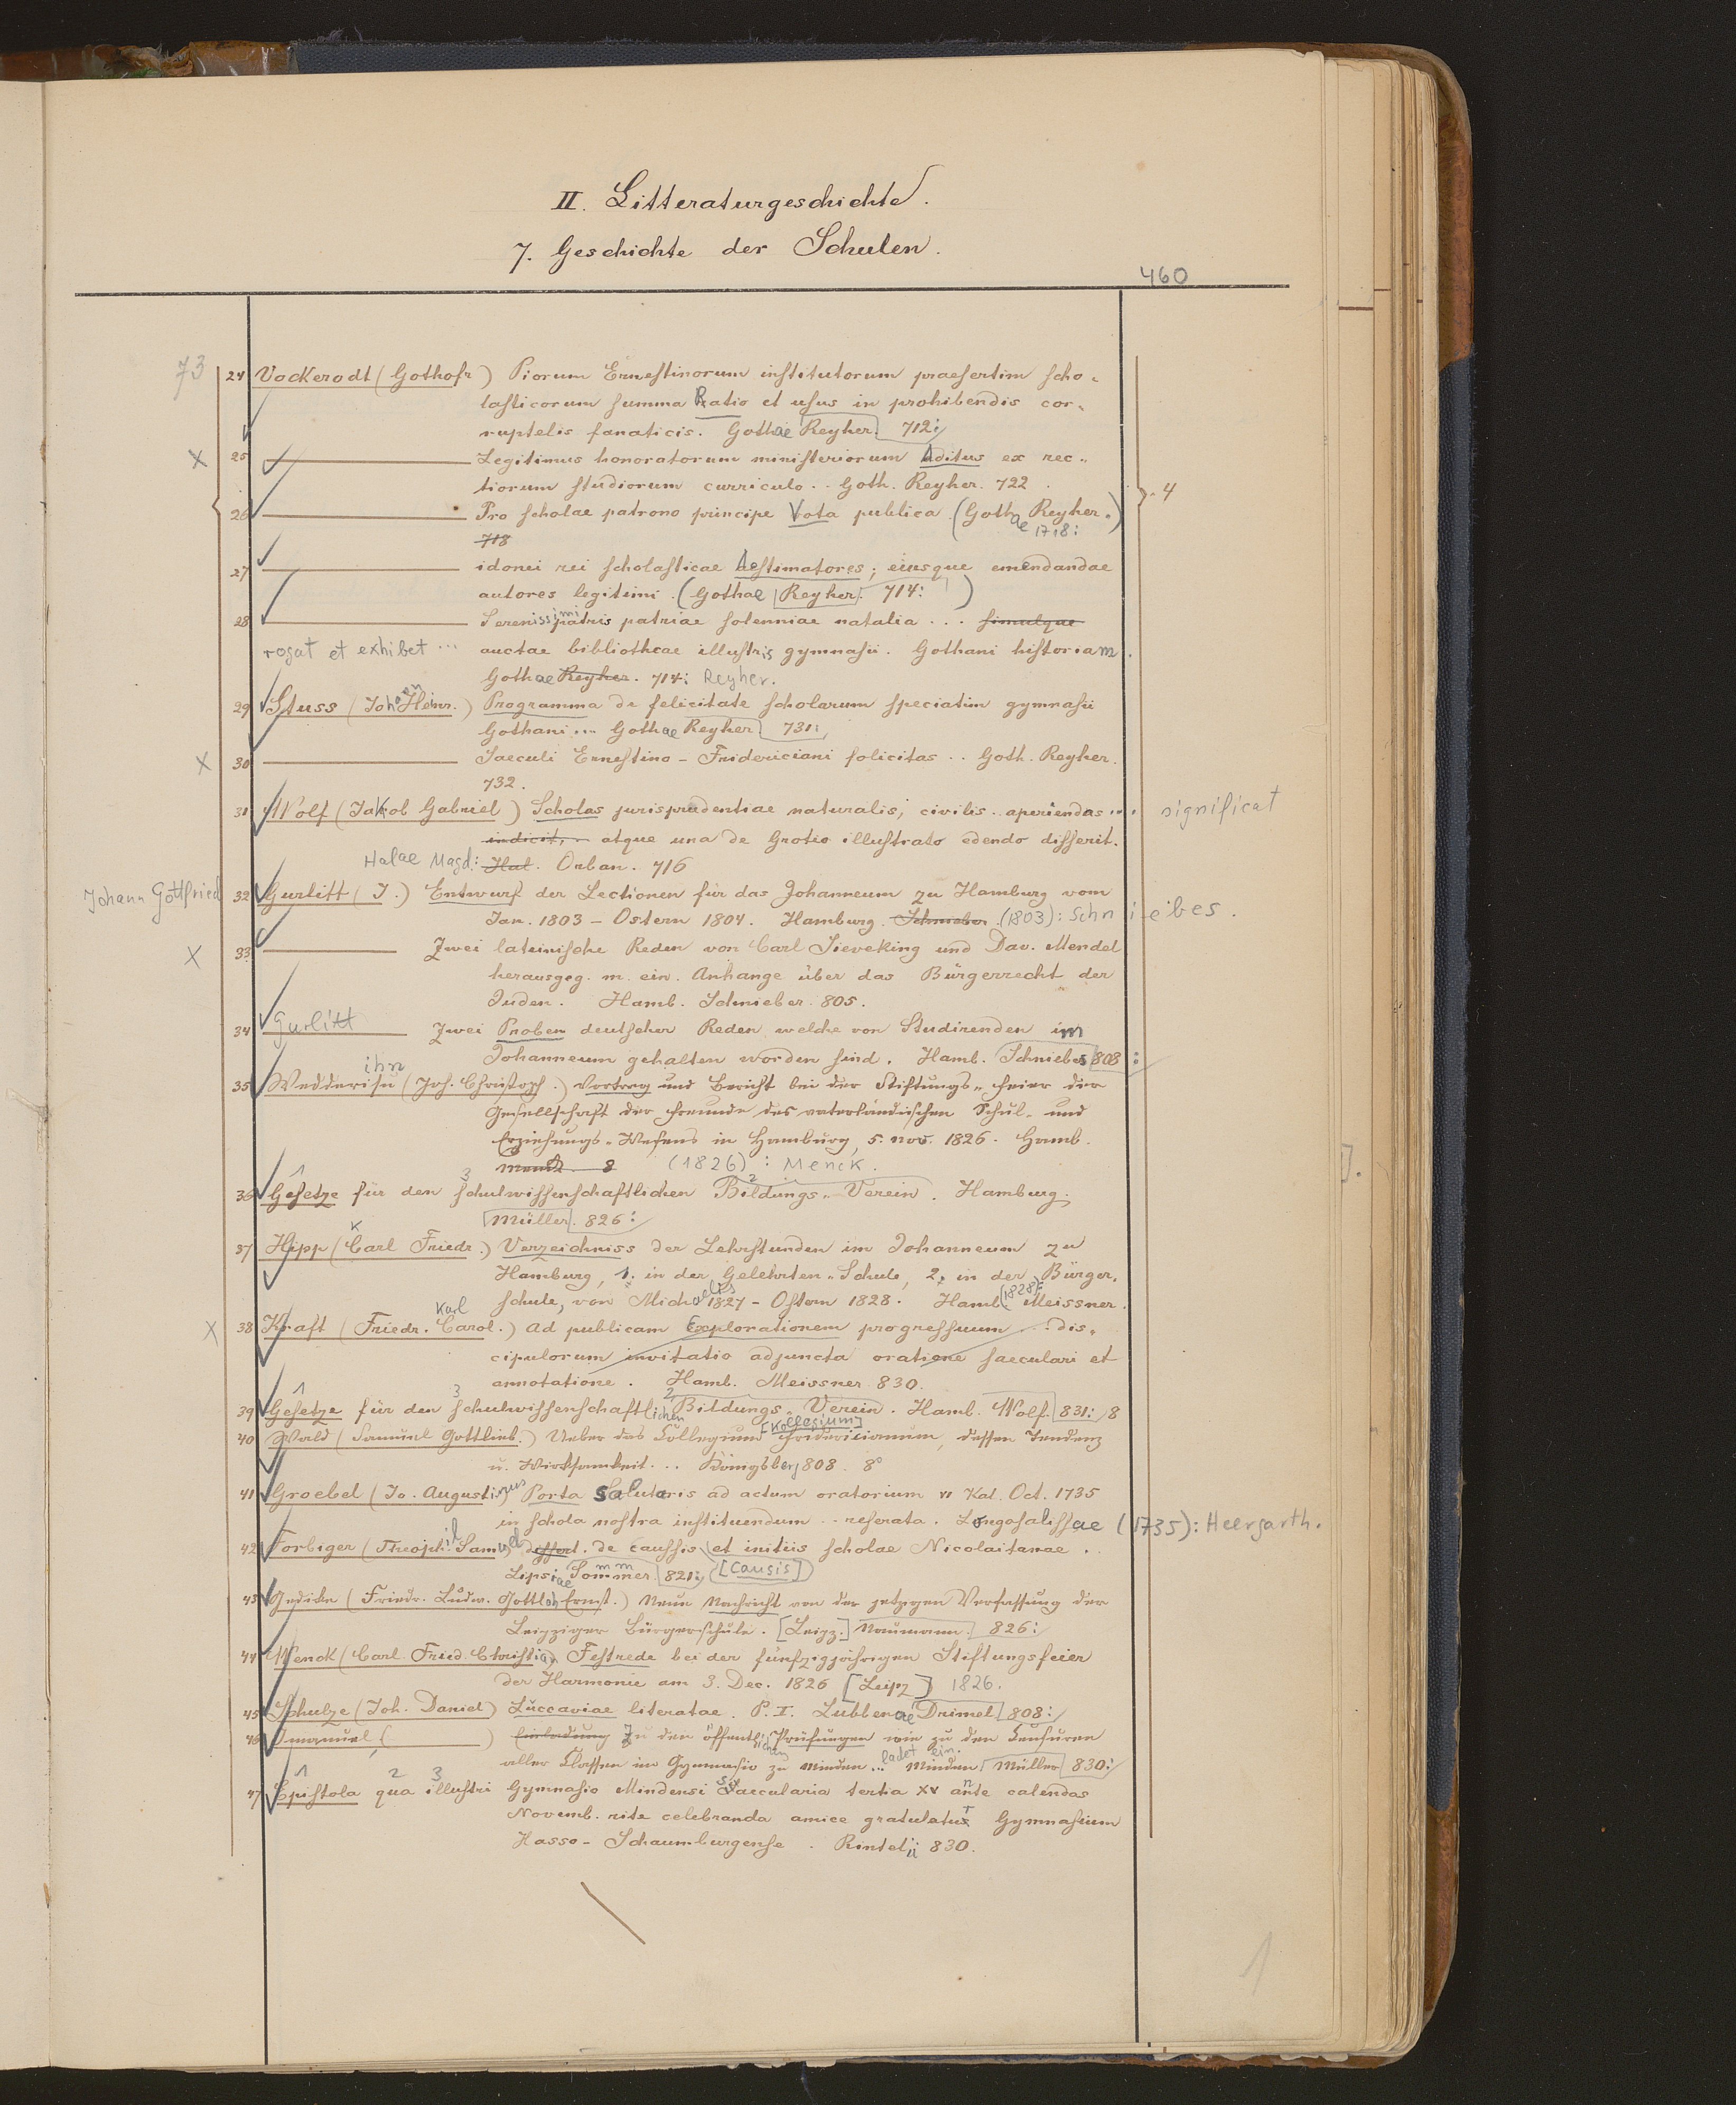 II. Litteraturgeschichte.
7. Geschichte der Schulen.
460
73
24 Vockerodt (Gothofr) Piorum Ernestinorum institutorum praesertim scho-
lasticorum summa Ratio et usus in prohibendis cor-
ruptelis fanaticis. Gothae Reyher. 712:
x 25 Legitimus honoratorum ministeriorum Aditus ex rec-
tiorum studiorum curriculo .. Goth. Reyher. 722.
4
26 Pro scholae patrono principe Vota publica (Gothae Reyher.)
718 1718:
27 idonei rei scholasticae Aestimatores; eiusque emendandae
autores legitimi. (Gothae Reyher. 714: )
28 Serenissimi patris patriae solenniae natalia ... simulque
rogat et exhibet ... auctae bibliothecae illustris gymnasii. Gothani historiam.
Gothae Reyher. 714: Reyher.
29 Stuss (Johann Heinr.) Programma de felicitate scholarum speciatim gymnasii
Gothani ... Gothae Reyher 731:
x 30 Saeculi Ernestino-Fridericiani folicitas .. Goth. Reyher.
732.
31 Wolf (Jakob Gabriel) Scholas jurisprudentiae naturalis, civilis .. aperiendas ... significat
indicit, atque una de Grotio illustrato edendo disserit.
Halae Magd: Hal. Orban. 716
Johann Gottfried 32 Gurlitt (J.) Entwurf der Lectionen für das Johanneum zu Hamburg vom
Jan. 1803 - Ostern 1804. Hamburg. Schnieber (1803): Schniebes.
x 33 Zwei lateinische Reden von Carl Sieveking und Dav. Mendel
herausgeg. m. ein. Anhange über das Bürgerrecht der
Juden. Hamb. Schnieber. 805.
34 Gurlitt Zwei Proben deutscher Reden, welche von Studirenden im
Johanneum gehalten worden sind. Hamb. Schniebes 808:
35 Wedderihn (Joh. Christoph.) Vortrag und Bericht bei der Stiftungs-Feier der
Gesellschaft der Freunde des vaterländischen Schul- und
Erziehungs-Wesens in Hamburg, 5. Nov. 1826. Hamb.
Menck. 8 (1826): Menck.
36 Gesetze für den schulwissenschaftlichen Bildungs-Verein. Hamburg.
Müller. 826:
37 Hipp (Carl Friedr.) Verzeichniss der Lehrstunden im Johanneum zu
Hamburg, 1. in der Gelehrten-Schule, 2. in der Bürger-
schule, von Michaelis 1827 - Ostern 1828. Hamb. (1828): Meissner.
x 38 Kraft (Friedr. Carol. Karl) Ad publicam Explorationem progressuum ... dis-
cipulorum invitatio adjuncta oratione saeculari et
annotatione. Hamb. Meissner 830.
39 Gesetze für den schulwissenschaftlichen Bildungs Verein. Hamb. Wolf. 831: 8
40 Wald (Samuel Gottlieb.) Ueber das Collegium [Kollegium] Fridericianum, dessen Tendenz
u. Wirksamkeit ... Königsberg 808. 8°
41 Groebel (Jo. Augustinus) Porta Salutaris ad actum oratorium VI Kal. Oct. 1735
in schola nostra instituendum .. reserata. Longosalissae (1735): Heergarth.
42 Forbiger (Theophil. Samuel) dessert. de caussis et initiis scholae Nicolaitanae.
Lipsiae Sommer. 821: [causis]
43 Gedike (Friedr. Ludw. Gottlob Ernst.) Neue Nachricht von der jetzigen Verfassung der
Leipziger Bürgerschule. [Leipz.] Naumann. 826:
44 Wenck (Carl Fried. Christian) Festrede bei der fünfzigjährigen Stiftungsfeier
der Harmonie am 3. Dec. 1826 [Leipz] 1826.
45 Schulze (Joh. Daniel) Luccaviae literatae. P. I. Lubbenae Driemel 808:
46 Imanuel ( ) Einladung Zu den öffentlichen Prüfungen wie zu den Censuren
aller Classen im Gymnasio zu Minden ... ladet ein. Minden Müller 830:
47 Epistola qua illustri Gymnasio Mindensi Saecularia tertia XV ante calendas
Novemb. rite celebranda amice gratulatur Gymnasium
Hasso-Schaumburgense. Rintelii 830.
1